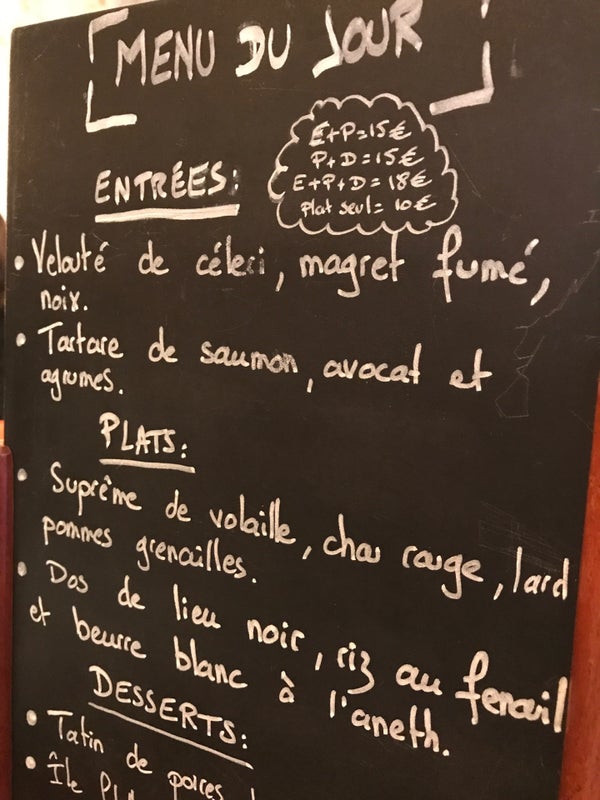 MENU DU JOUR
E+P=15€
P+D=15€
E+P+D=18€
Plat seul= 10€
ENTRÉES:
• Velouté de céleri, magret fumé,
noix.
• Tartare de saumon, avocat et
agrumes.
PLATS:
• Suprême de volaille, chou rouge, lard
pommes grenailles.
• Dos de lieu noir, riz au fenouil
et beurre blanc à l'aneth.
DESSERTS:
• Tatin de poires
• Île